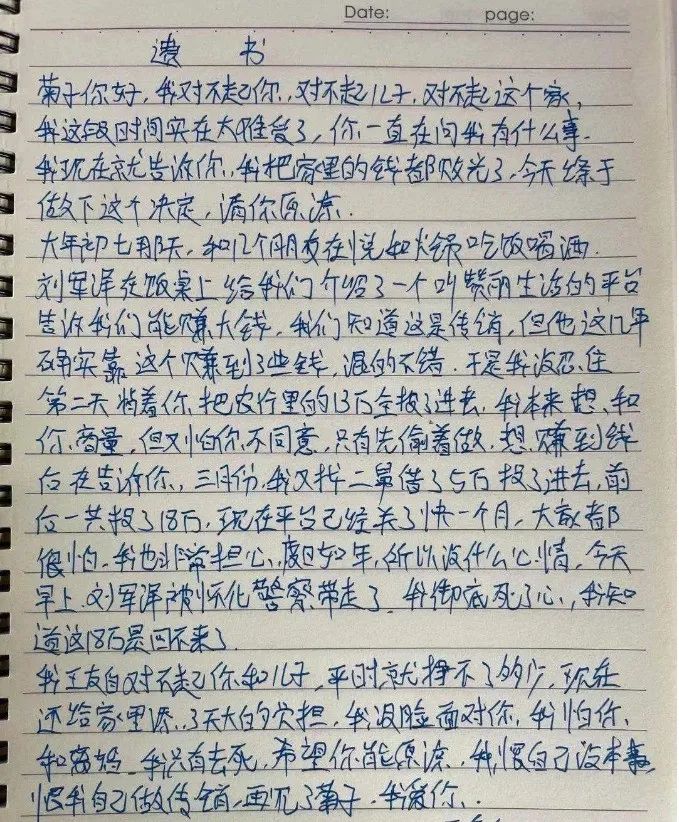 Date: page:
遗书
菊子你好，我对不起你，对不起儿子，对不起这个家，
我这段时间实在太难受了，你一直在问我有什么事.
我现在就告诉你，我把家里的钱都败光了，今天终于
做下这个决定，请你原凉.
大年初七那天，和几个朋友在悦如火锅吃饭喝酒.
刘军泽在饭桌上给我们介绍了一个叫赞丽生活的平台
告诉我们能赚大钱，我们知道这是传销，但他这几年
确实靠这个赚到了些钱，混的不错.于是我没忍住
第二天背着你把农行里的13万全投了进去，我本来想和
你商量，但又怕你不同意，只有先偷着做，想赚到钱
后在告诉你，三月份，我又找二舅借了5万投了进去，前
后一共投了18万，现在平台已经关了快一个月，大家都
很怕，我也非常担心，度日如年，所以没什么心情，今天
早上，刘军泽被怀化警察带走了，我彻底死了心，我知
道这18万是回不来了
我王友自对不起你和儿子，平时就挣不了多少，现在
还给家里添了天大的负担，我没脸面对你，我怕你
和离妈，我只有去死，希望你能原凉，我恨自己没本事，
恨我自己做传销，再见了菊子，我爱你.